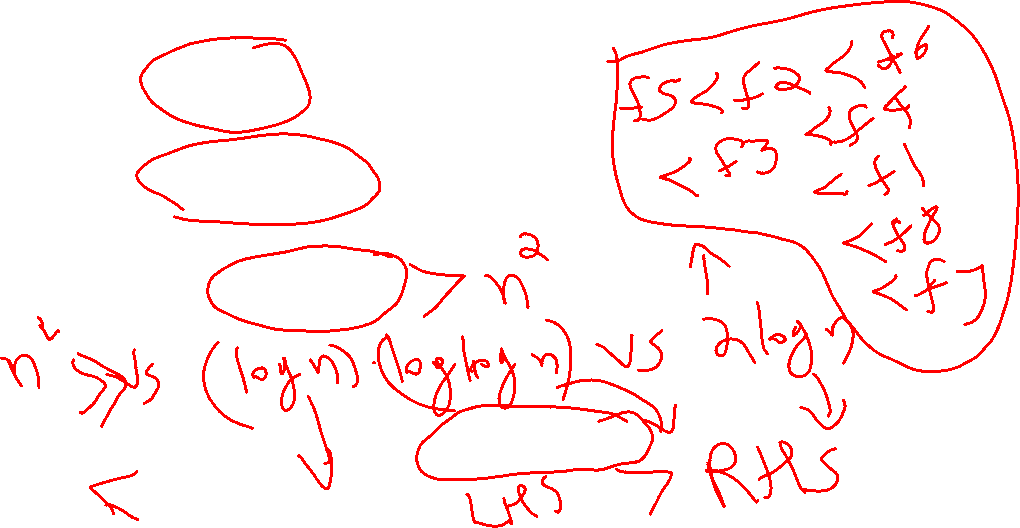 f5 < f2 < f6
< f4
< f3
< f1
< f8
< f7
> n²
n² >> vs (log n) · (log log n) vs 2 log n
<
LHS → RHS